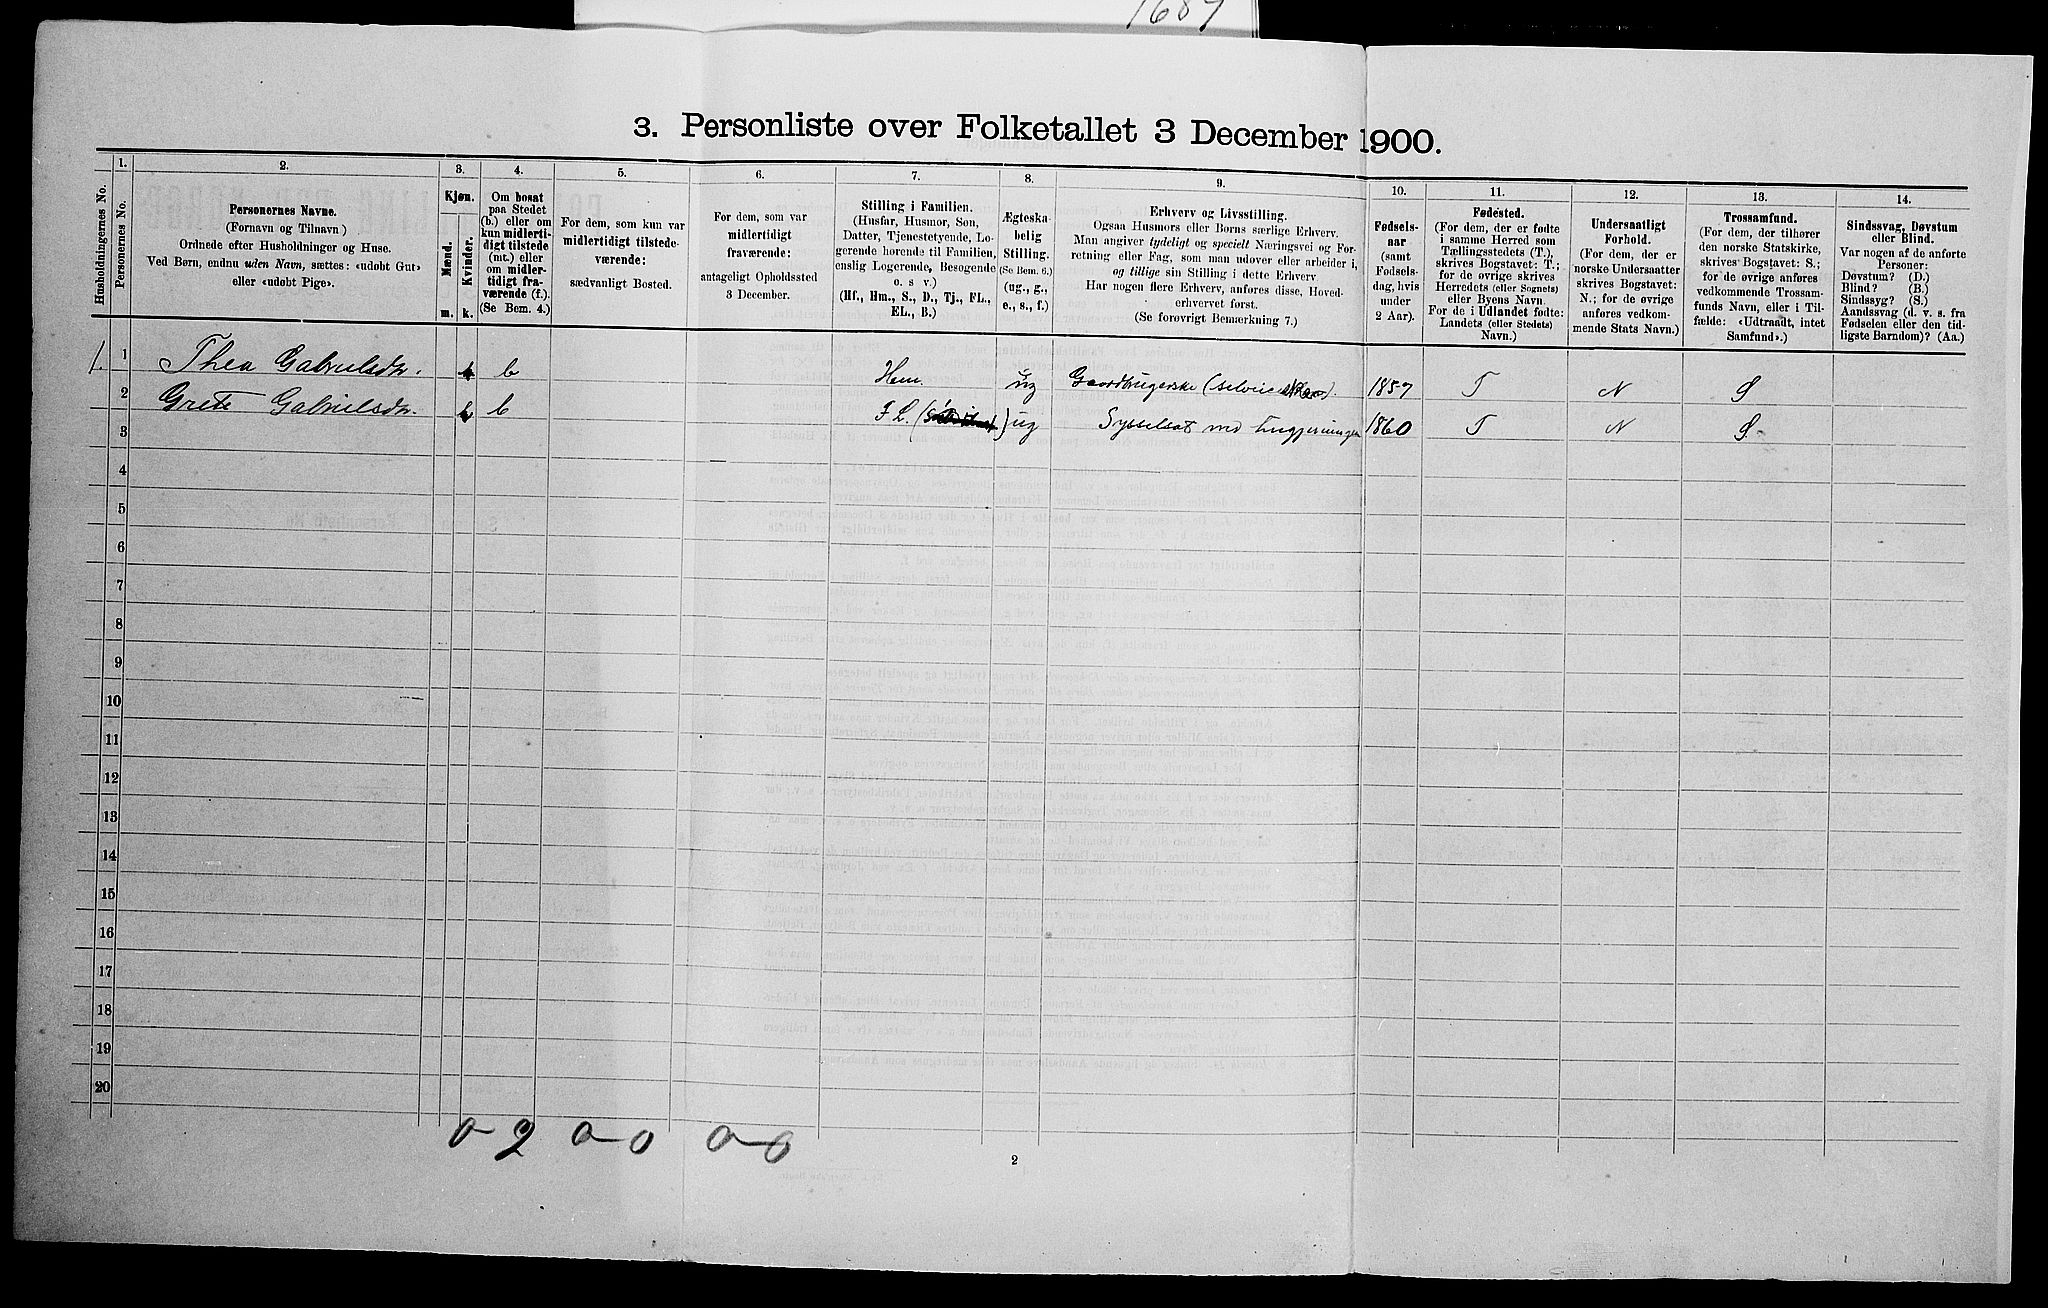 1687
3. Personliste over Folketallet 3 December 1900.
Husholdningernes No.
1.
Personernes No.
2.
Personernes Navne.
(Fornavn og Tilnavn)
Ordnede efter Husholdninger og Huse.
Ved Børn, endnu uden Navn, sættes: «udøbt Gut»
eller «udøbt Pige».
3.
Kjøn.
Mænd.
Kvinder.
m. k.
4.
Om bosat
paa Stedet
(b.) eller om
kun midlerti-
digt tilstede
(mt.) eller
om midler-
tidigt fra-
værende (f.).
(Se Bem. 4.)
5.
For dem, som kun var
midlertidigt tilstede-
værende:
sædvanligt Bosted.
6.
For dem, som var
midlertidigt
fraværende:
antageligt Opholdssted
3 December.
7.
Stilling i Familien.
(Husfar, Husmor, Søn,
Datter, Tjenestetyende, Lo-
gerende hørende til Familien,
enslig Logerende, Besøgende
o. s v.)
(Hf., Hm., S., D., Tj., FL.,
EL., B.)
8.
Ægteska-
belig
Stilling.
(Se Bem. 6.)
(ug., g.,
e., s., f.)
9.
Erhverv og Livsstilling.
Ogsaa Husmors eller Børns særlige Erhverv.
Man angiver tydeligt og specielt Næringsvei og For-
retning eller Fag, som man udøver eller arbeider i,
og tillige sin Stilling i dette Erhverv
Har nogen flere Erhverv, anføres disse, Hoved-
erhvervet først.
(Se forøvrigt Bemærkning 7.)
10.
Fødsels-
aar
(samt
Fødsels-
dag, hvis
under
2 Aar).
11.
Fødested.
(For dem, der er fødte
i samme Herred som
Tællingsstedets (T.),
skrives Bogstavet: T.;
for de øvrige skrives
Herredets (eller Sognets)
eller Byens Navn
For de i Udlandet fødte:
Landets (eller Stedets)
Navn.)
12.
Undersaatligt
Forhold.
(For dem, der er
norske Undersaatter
skrives Bogstavet:
N.; for de øvrige
anføres vedkom-
mende Stats Navn.)
13.
Trossamfund.
(For dem, der tilhører
den norske Statskirke,
skrives Bogstavet: S.;
for de øvrige anføres
vedkommende Trossam-
funds Navn, eller i Til-
fælde: «Udtraadt, intet
Samfund».)
14.
Sindssvag, Døvstum
eller Blind.
Var nogen af de anførte
Personer:
Døvstum? (D.)
Blind? (B.)
Sindssyg? (S.)
Aandssvag (d. v. s. fra
Fødselen eller den tid-
ligste Barndom)? (Aa.)
1. 1 Thea Gabrielsdr. k b Hm. ug Gaardbrugerske (selveier). 1857 T N S
2 Grete Gabrielsdr. k b FL. ug Sysselsat med 1860 T N S.
3
4
5
6
7
8
9
10
11
12
13
14
15
16
17
18
19
20
0-2 0-0 0-0
2